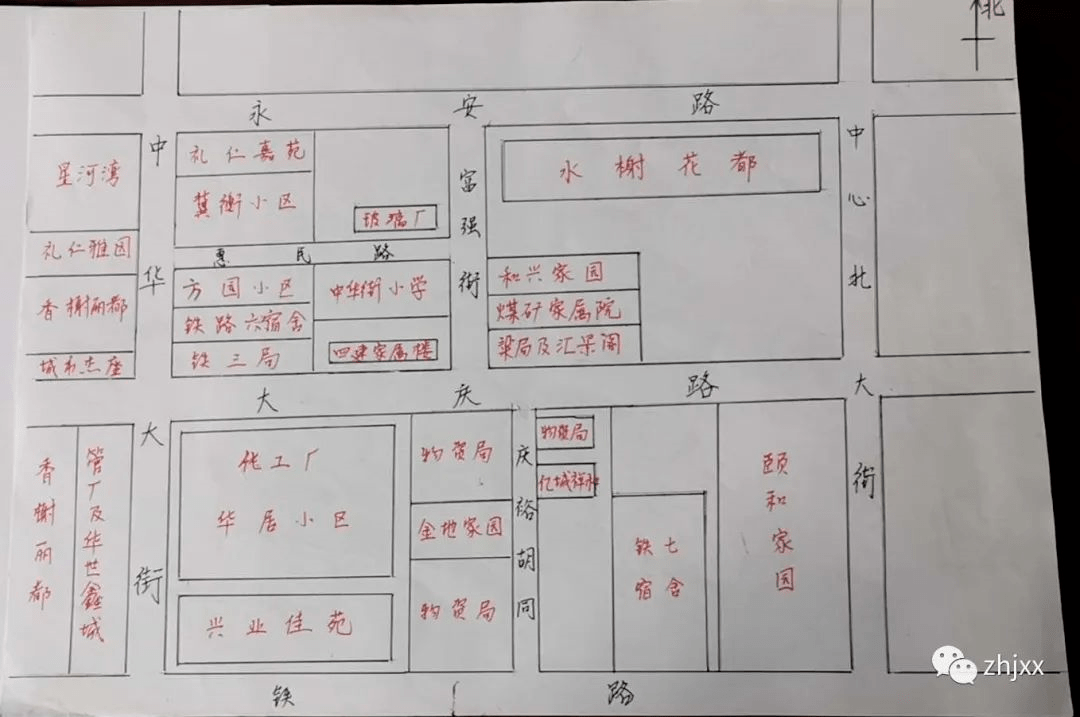 北
永安路
中华大街
富强街
中心北大街
星河湾
礼仁雅园
香榭丽都
城市杰座
礼仁嘉苑
冀衡小区
玻璃厂
水榭花都
惠民路
方园小区
铁路六宿舍
铁三局
中华街小学
四建家属楼
和兴家园
煤矿家属院
梁局及汇景阁
大庆路
香榭丽都
管厂及华世鑫城
化工厂
华居小区
兴业佳苑
物资局
金地家园
物资局
庆裕胡同
物资局
亿城祥和
铁七
宿舍
颐和家园
铁路
zhjxx